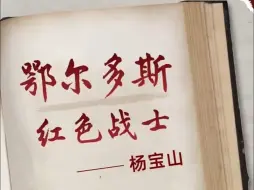 鄂尔多斯
红色战士
——杨宝山